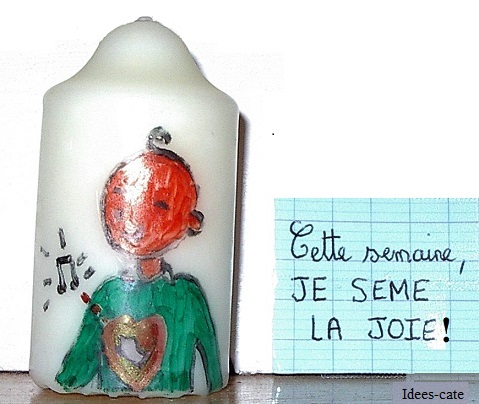 Cette semaine,
JE SEME
LA JOIE!
Idees-cate